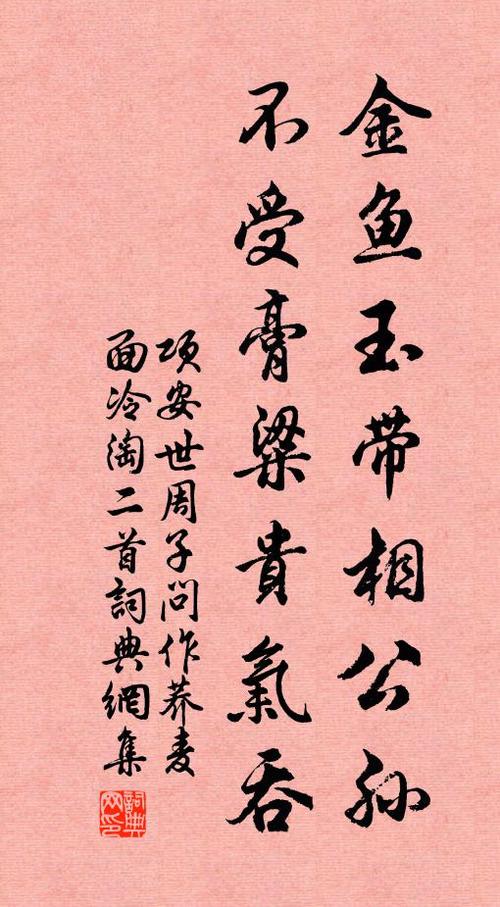 金鱼玉带相公孙
不受膏粱贵氣吞
项安世周子问作荞麦
面冷淘二首詞典網集
詞典網印